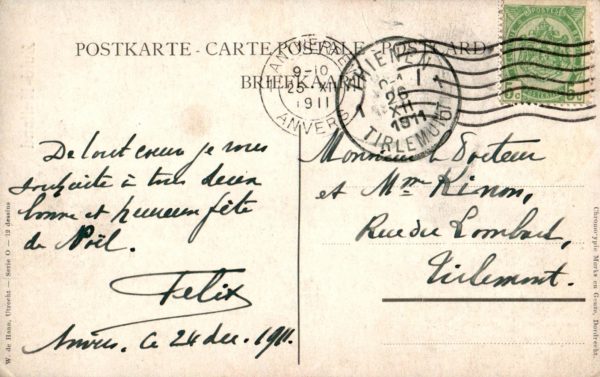 POSTKARTE - CARTE POSTALE - POSTCARD
BRIEFKAART
ANTWERPEN
9-10
25 XII
1911
ANVERS
THIENEN
1 1
26
XII
1911
TIRLEMONT
POSTES
5c 5c
De tout cœur je vous
souhaite à tous deux
bonne et heureuse fête
de Noël.
Felix
Anvers, ce 24 dec. 1911.
Monsieur le Docteur
et Mme Kinon,
Rue du Lombard,
Tirlemont.
W. de Haan, Utrecht — Serie O — 12 dessins
Chromotypie Morks en Geuze, Dordrecht.